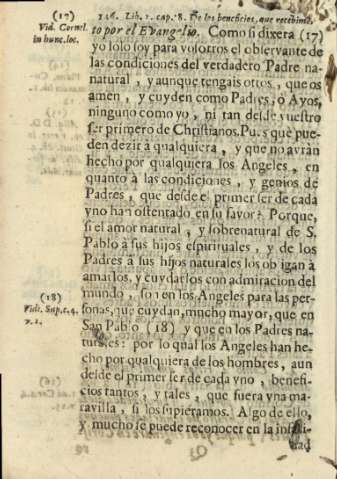 (17)
Vid. Cornel.
in hunc. loc.
146. Lib. 1. cap. 8. De los beneficios, que recebimos
to por el Evangelio. Como si dixera (17)
yo solo soy para vosotros el observante de
las condiciones del verdadero Padre na-
natural, y aunque tengais otros, que os
amen, y cuyden como Padres, o Ayos,
ninguno como yo, ni tan desde vuestro
ser primero de Christianos. Pues què pue-
den dezir à qualquiera, y que no avràn
hecho por qualquiera los Angeles, en
quanto à las condiciones, y genios de
Padres, que desde el primer ser de cada
vno han ostentado en su favor? Porque,
si el amor natural, y sobrenatural de S.
Pablo à sus hijos espirituales, y de los
Padres à sus hijos naturales los obligan à
amarlos, y cuydarlos con admiracion del
mundo, son en los Angeles para las per-
sonas, que cuydan, mucho mayor, que en
San Pablo (18) y que en los Padres na-
turales: por lo qual los Angeles han he-
cho por qualquiera de los hombres, aun
desde el primer ser de cada vno, benefi-
cios tantos, y tales, que fuera vna ma-
ravilla, si los supieramos. Algo de ello,
y mucho se puede reconocer en la
(18)
Vide. Sup. c. 4.
n. 1.